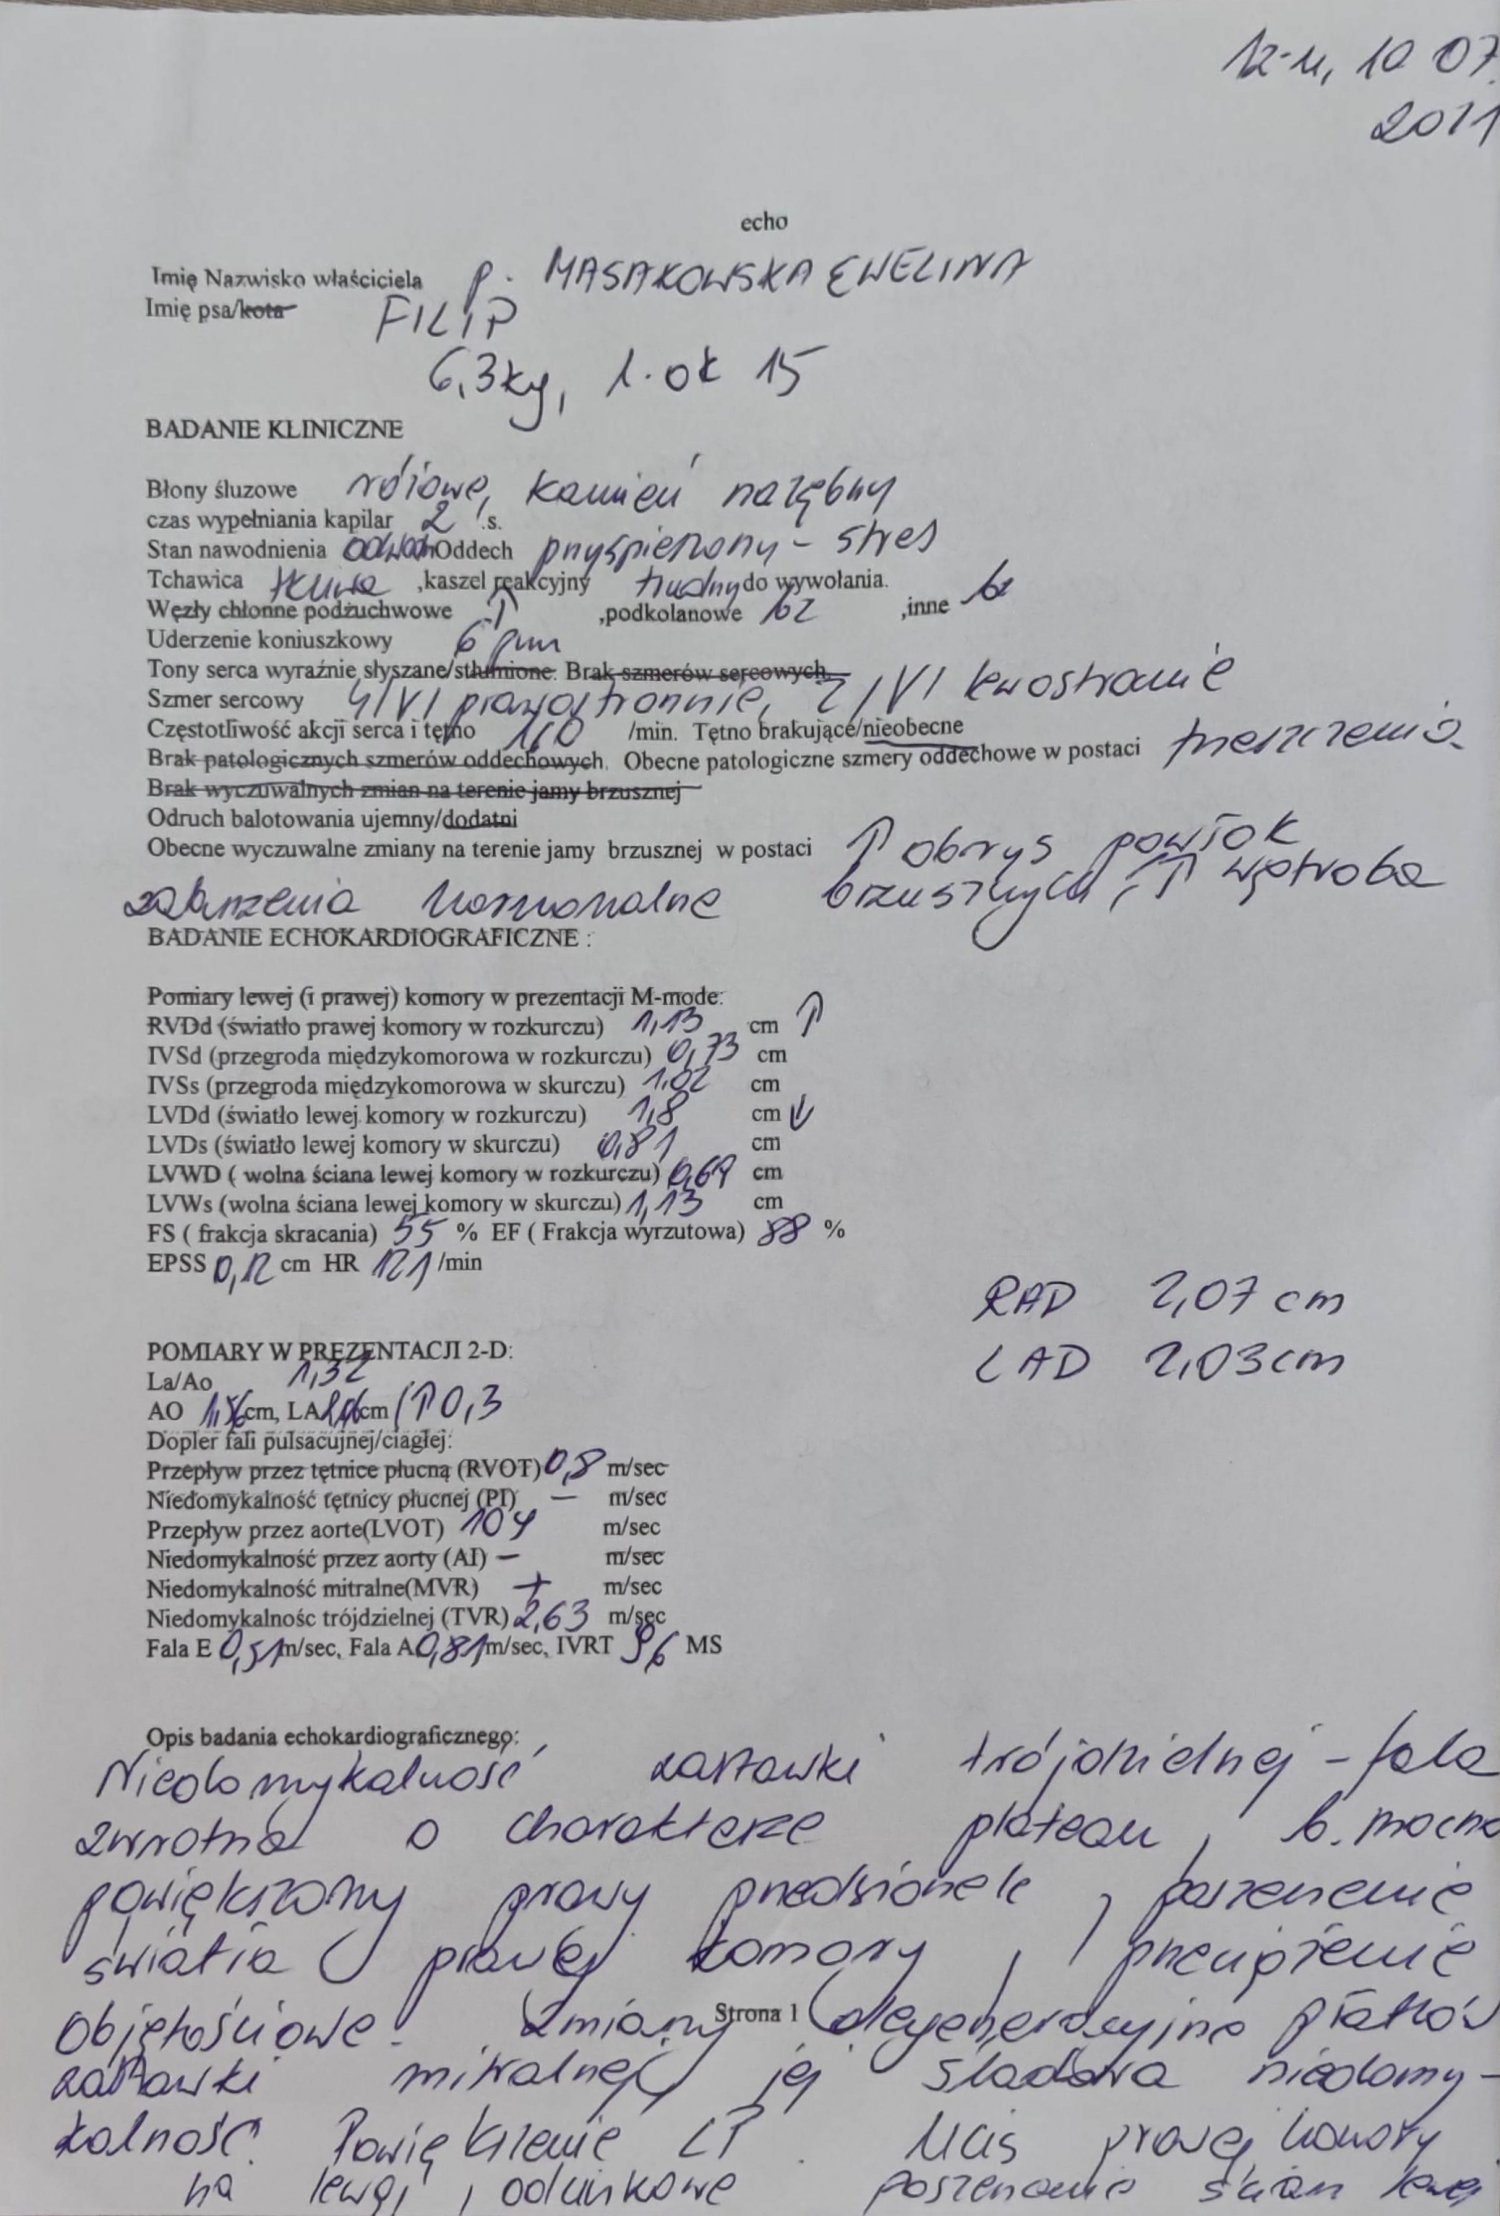 10 07
2021
echo
Imię Nazwisko właściciela p. MASAKOWSKA EWELINA
Imię psa/kota FILIP
6,3kg, l. ok 15
BADANIE KLINICZNE
Błony śluzowe różowe, kamień nazębny
czas wypełniania kapilar 2 s.
Stan nawodnienia odwodn Oddech przyśpieszony - stres
Tchawica tkliwa ,kaszel reakcyjny trudny do wywołania.
Węzły chłonne podżuchwowe ↑ ,podkolanowe bz ,inne bz
Uderzenie koniuszkowy 6 pmż
Tony serca wyraźnie słyszane/stłumione. Brak szmerów sercowych.
Szmer sercowy 4/VI prawostronnie, 2/VI lewostronnie
Częstotliwość akcji serca i tętno 160 /min. Tętno brakujące/nieobecne
Brak patologicznych szmerów oddechowych. Obecne patologiczne szmery oddechowe w postaci trzeszczenia
Brak wyczuwalnych zmian na terenie jamy brzusznej
Odruch balotowania ujemny/dodatni
Obecne wyczuwalne zmiany na terenie jamy brzusznej w postaci ↑ obrys powłok
zaburzenia hormonalne brzusznych, ↑ wątroba
BADANIE ECHOKARDIOGRAFICZNE :
Pomiary lewej (i prawej) komory w prezentacji M-mode:
RVDd (światło prawej komory w rozkurczu) 1,13 cm ↑
IVSd (przegroda międzykomorowa w rozkurczu) 0,73 cm
IVSs (przegroda międzykomorowa w skurczu) 1,02 cm
LVDd (światło lewej komory w rozkurczu) 1,8 cm ↓
LVDs (światło lewej komory w skurczu) 0,81 cm
LVWD ( wolna ściana lewej komory w rozkurczu) 0,69 cm
LVWs (wolna ściana lewej komory w skurczu) 1,13 cm
FS ( frakcja skracania) 55 % EF ( Frakcja wyrzutowa) 88 %
EPSS 0,12 cm HR 121 /min
RAD 2,07 cm
LAD 2,03 cm
POMIARY W PREZENTACJI 2-D:
La/Ao 1,32
AO cm, LA cm (↑0,3
Dopler fali pulsacujnej/ciągłej:
Przepływ przez tętnice płucną (RVOT) 0,8 m/sec
Niedomykalność tętnicy płucnej (PI) — m/sec
Przepływ przez aorte(LVOT) 104 m/sec
Niedomykalność przez aorty (AI) — m/sec
Niedomykalność mitralne(MVR) + m/sec
Niedomykalnośc trójdzielnej (TVR) 2,63 m/sec
Fala E 0,51 m/sec, Fala A 0,81 m/sec, IVRT 96 MS
Opis badania echokardiograficznego:
Niedomykalność zastawki trójdzielnej - fala
zwrotna o charakterze plateau, b. mocno
powiększony prawy przedsionek, poszerzenie
światła prawej komory, przeciążenie
objętościowe. Zmiany degeneracyjne płatków
Strona 1
zastawki mitralnej, jej śladowa niedomy-
kalność. Powiększenie LP. Ucis prawej komory
na lewą, odcinkowe poszerzenie ścian lewej